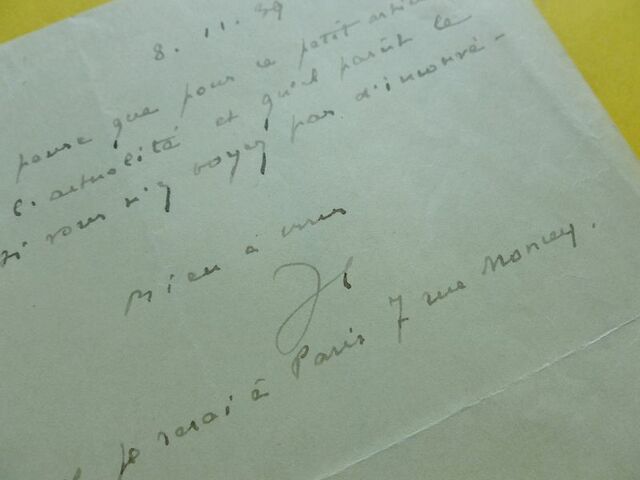 8. 11. 39
pense que pour ce petit article
l'actualité et qu'il parût le
si vous n'y voyez pas d'inconvé-
Bien à vous
Je serai à Paris 7 rue Moncey.